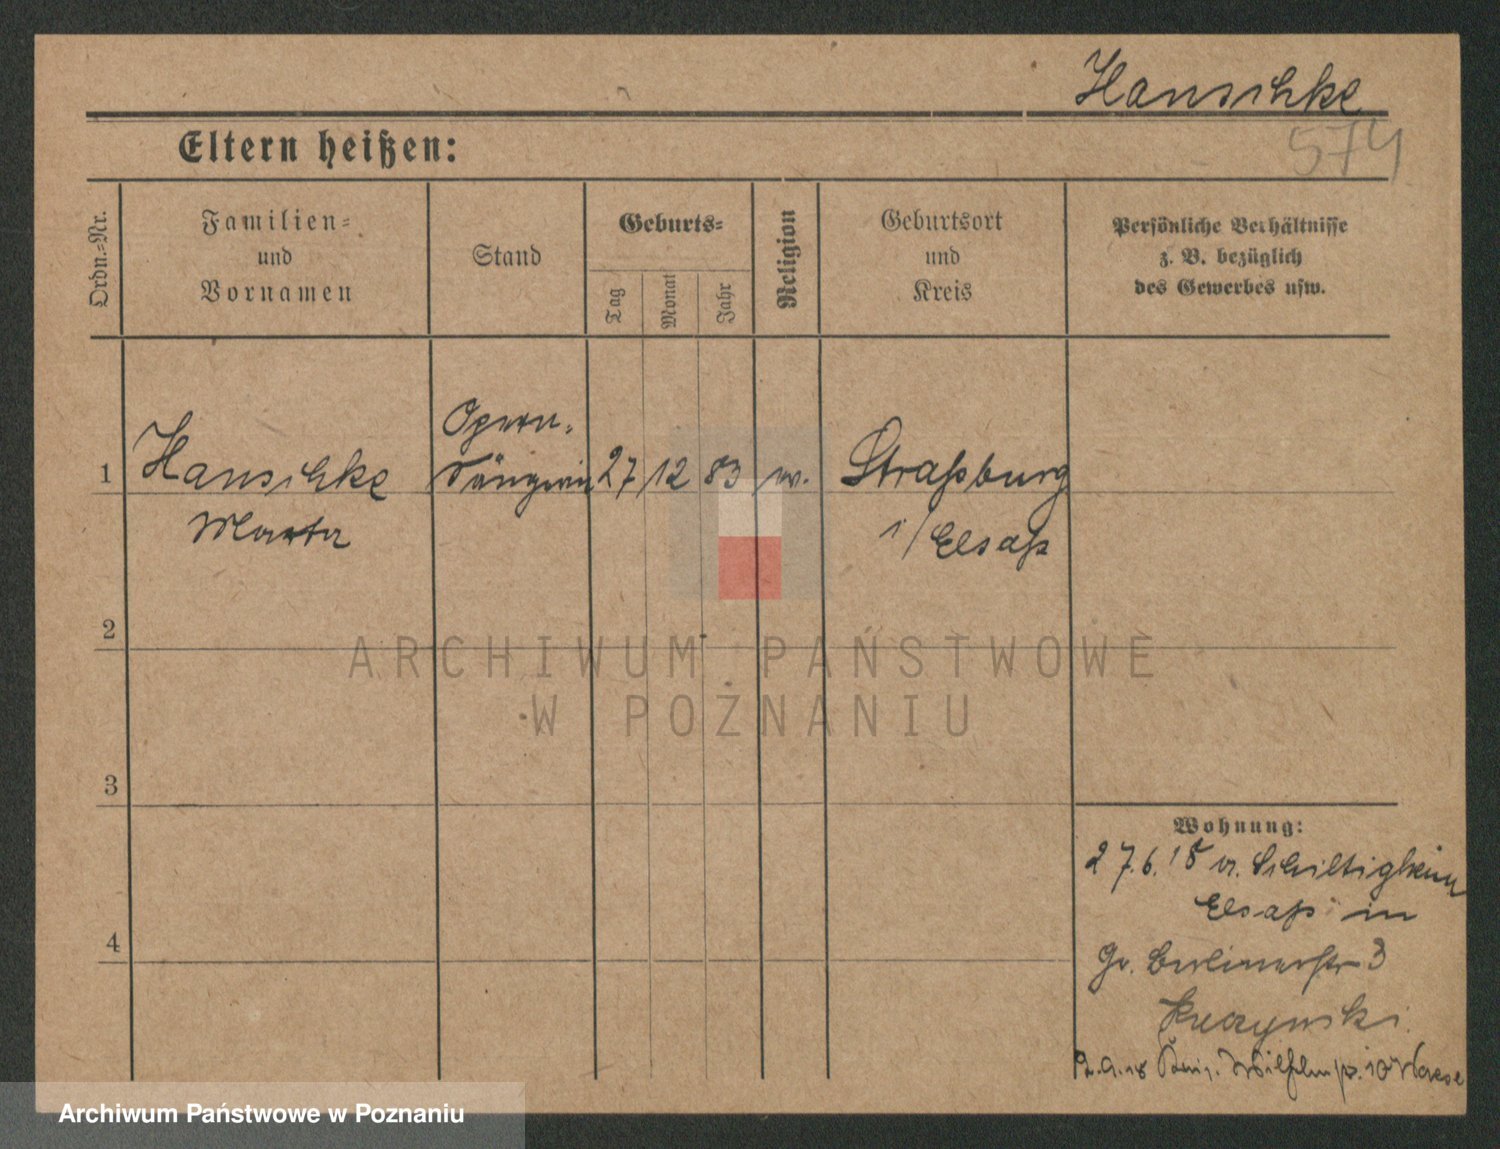 Hanschke
574
Eltern heißen:
Ordn.=Nr.
Familien=
und
Vornamen
Stand
Geburts=
Tag
Monat
Jahr
Religion
Geburtsort
und
Kreis
Persönliche Verhältnisse
z. B. bezüglich
des Gewerbes usw.
1
Hanschke
Marta
Opern-
Sängerin
27
12
83
Straßburg
i/ Elsaß
2
3
4
ARCHIWUM PAŃSTWOWE
W POZNANIU
Wohnung:
27.6.18 v. Schiltigheim
Elsaß in
Gr. Berlinerstr 3
2.9.18 Wilhelmstr. 10
Archiwum Państwowe w Poznaniu